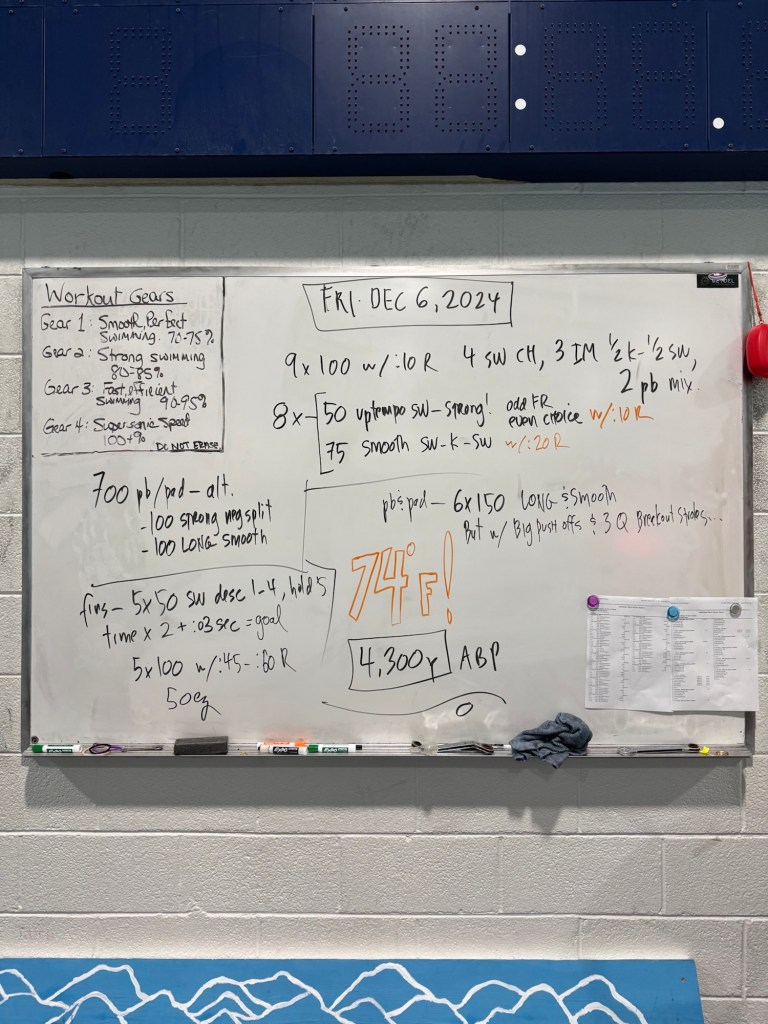 Workout Gears
Gear 1: Smooth, Perfect
Swimming. 70-75%
Gear 2: Strong swimming
80-85%
Gear 3: Fast, efficient
Swimming 90-95%
Gear 4: Supersonic Speed
100+%
DO NOT ERASE
FRI. DEC 6, 2024
9 x 100 w/:10 R 4 SW CH, 3 IM 1/2 K-1/2 SW,
2 pb mix.
8x 50 uptempo SW-strong! odd FR
even choice w/:10 R
75 smooth SW-K-SW w/:20 R
700 pb/pad - alt.
-100 strong neg split
-100 LONG smooth
pb & pad - 6x150 LONG & Smooth
But w/ Big push offs & 3 Q Breakout Strokes...
fins - 5x50 SW desc 1-4, hold 5
time x 2 + :03 sec = goal
5x100 w/:45-:60 R
50 ez
74°F!
4,300y ABP